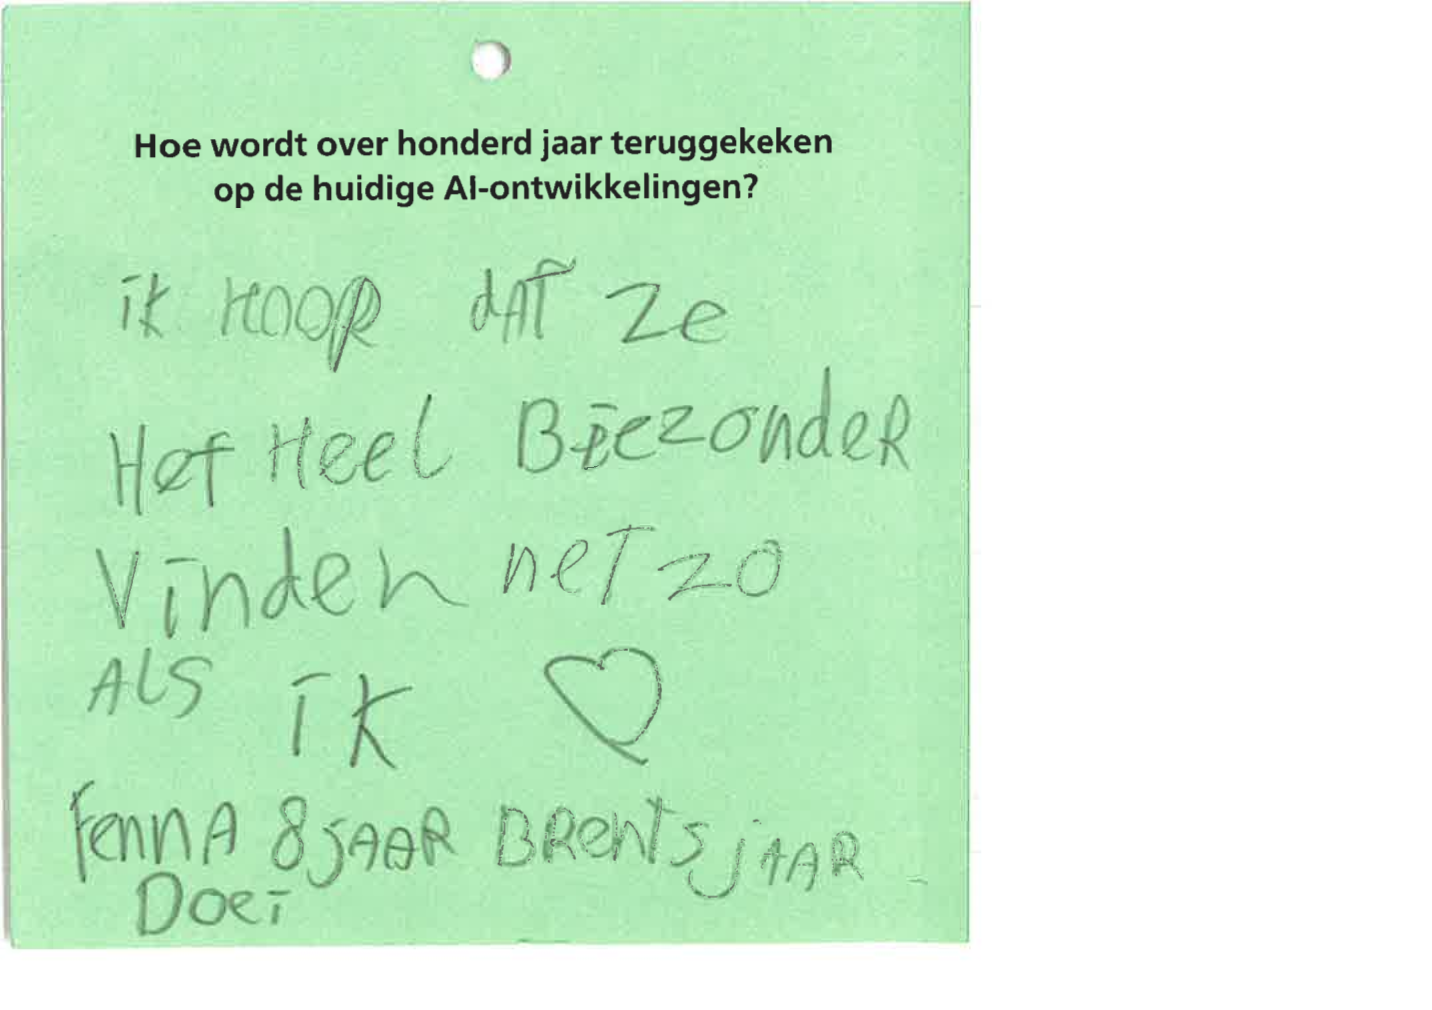 Hoe wordt over honderd jaar teruggekeken
op de huidige AI-ontwikkelingen?
ik HOOP dAT ze
Het Heel Biezonder
Vinden net zo
ALS ik
Fenna 8 jAAR BRent 5 jAAR
Doei